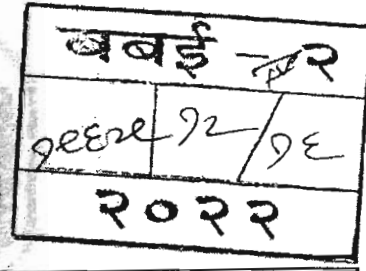 बबई - २
१९६२९ १२/१६
२०२२